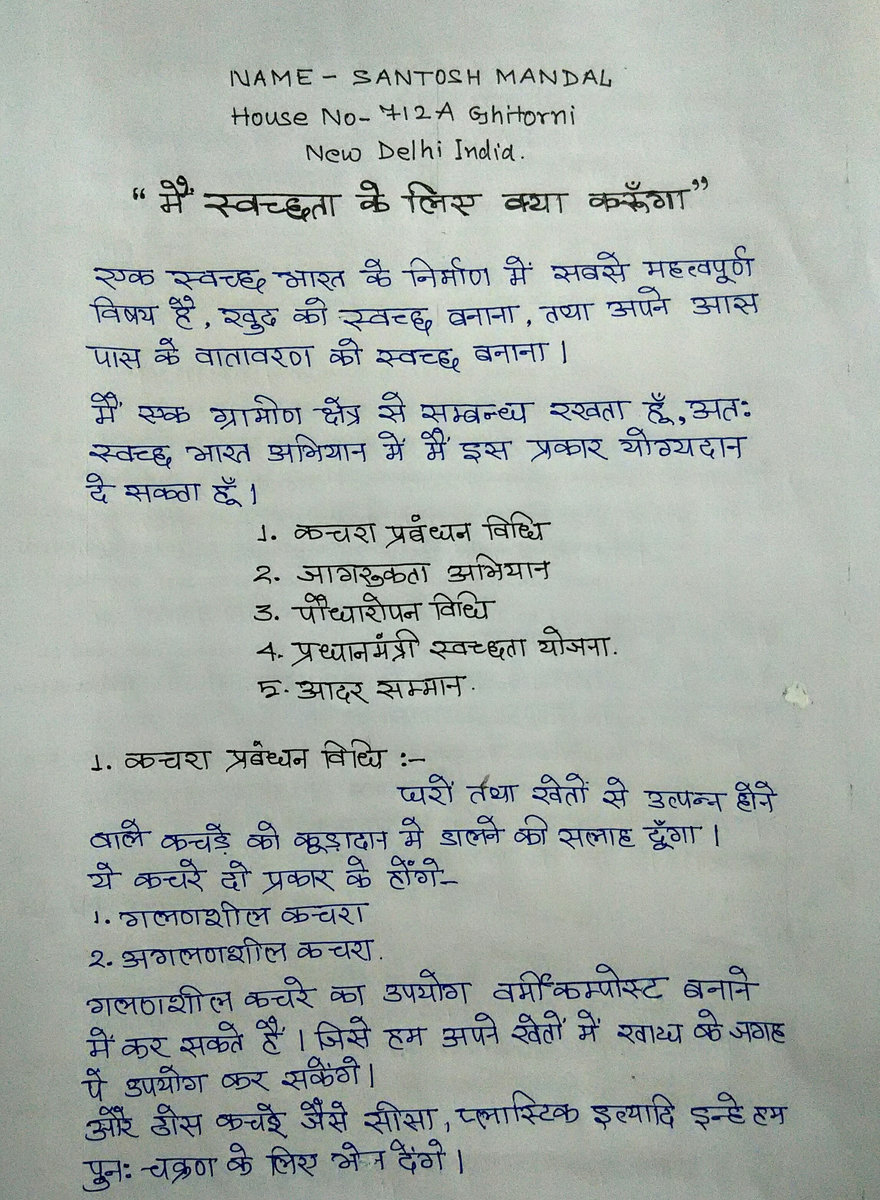 NAME - SANTOSH MANDAL
House No- 712A Ghitorni
New Delhi India.
“ मैं स्वच्छता के लिए क्या करूँगा”
एक स्वच्छ भारत के निर्माण में सबसे महत्वपूर्ण
विषय है, खुद को स्वच्छ बनाना, तथा अपने आस
पास के वातावरण को स्वच्छ बनाना।
मैं एक ग्रामीण क्षेत्र से सम्बन्ध रखता हूँ, अतः
स्वच्छ भारत अभियान में मैं इस प्रकार योग्यदान
दे सकता हूँ।
1. कचरा प्रबंधन विधि
2. जागरुकता अभियान
3. पौधारोपन विधि
4. प्रधानमंत्री स्वच्छता योजना.
5. आदर सम्मान.
1. कचरा प्रबंधन विधि :-
घरों तथा खेतों से उत्पन्न होने
वाले कचड़े को कूड़ादान में डालने की सलाह दूँगा।
ये कचरे दो प्रकार के होंगे-
1. गलणशील कचरा
2. अगलणशील कचरा.
गलणशील कचरे का उपयोग वर्मीकम्पोस्ट बनाने
में कर सकते हैं। जिसे हम अपने खेतों में खाद्य के जगह
पे उपयोग कर सकेंगे।
और ठोस कचड़े जैसे सीसा, प्लास्टिक इत्यादि इन्हे हम
पुनः चक्रण के लिए भेज देंगे।